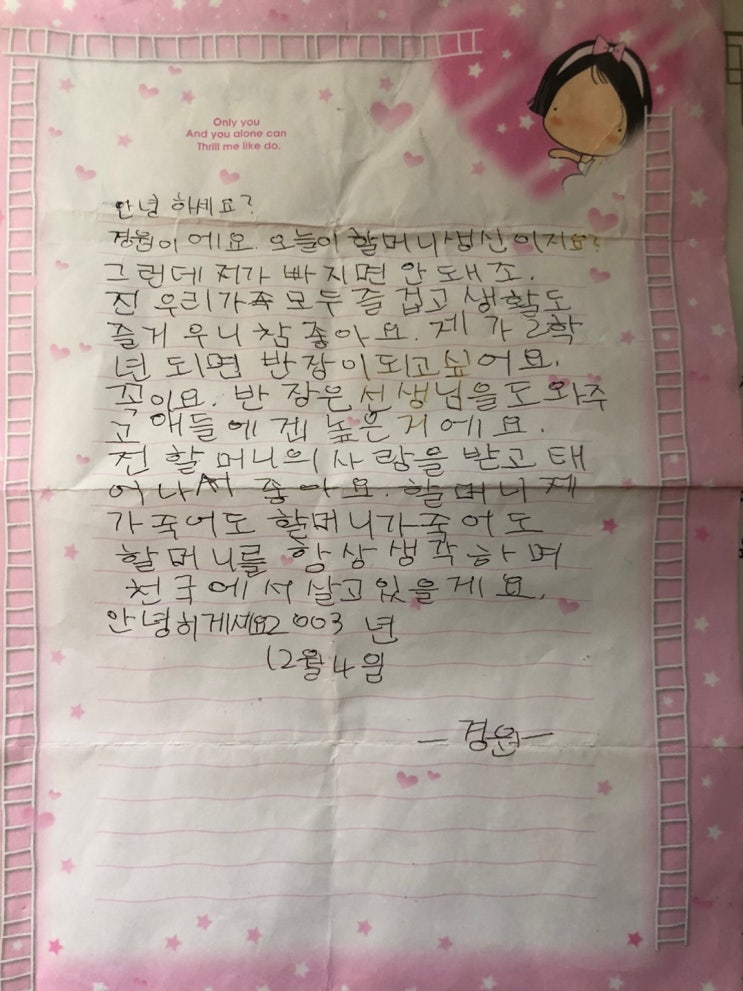 Only you
And you alone can
Thrill me like do.
안녕 하세요?
경원이 에요. 오늘이 할머니생신이지요?
그런데 저가 빠지면 안돼죠.
진 우리가족 모두 즐겁고 생활도
즐거 우니 참 좋아요. 제 가 2학
년 되면 반장이되고싶어요.
꼭이요. 반 장은 선생님을도와주
고 애들에겐 높은 거에요.
전 할머니의 사람을 받고 태
어나서 좋아요. 할머니 제
가죽어도 할머니가죽어도
할머니를 항상생각하며
천국에서 살고있을게요.
안녕히게세요2003 년
12월 4일
— 경원 —